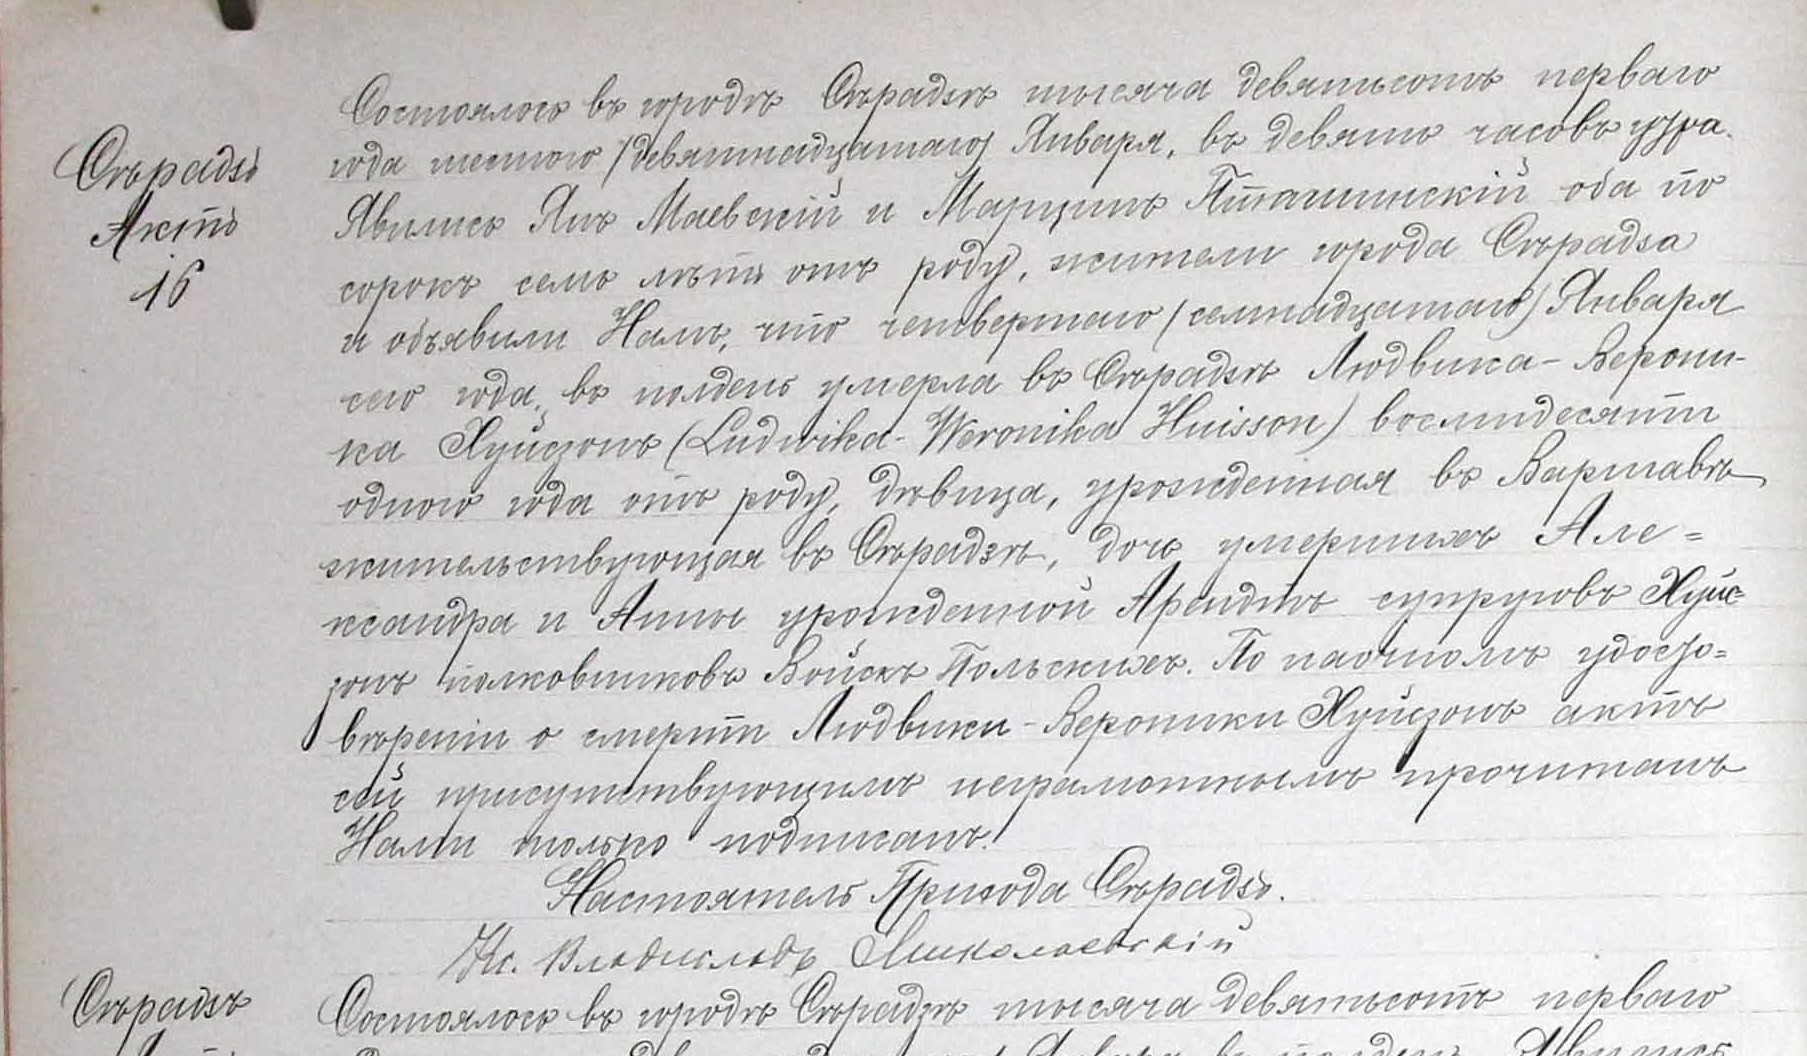 Состоялось въ городѣ Сѣрадзѣ тысяча девятьсотъ перваго
Сѣрадзь
года шестого /девятнадцатаго/ Января, въ девять часовъ утра.
Актъ
Явились Янъ Маевскій и Марцинъ Пташинскій оба по
16
сорокъ семь лѣтъ отъ роду, жители города Сѣрадза
и объявили Намъ, что четвертаго (семнадцатаго) Января
сего года, въ полдень умерла въ Сѣрадзѣ Людвика-Верони-
ка Хуйсзонъ (Ludwika-Weronika Huisson) восмидесяти
одного года отъ роду, дѣвица, урожденная въ Варшавѣ
жительствующая въ Сѣрадзѣ, дочь умершихъ Але=
ксандра и Анны урожденной Арендтъ супруговъ Хуйс-
зонъ полковниковъ Войскъ Польскихъ. По наочномъ удосто=
вѣреніи о смерти Людвики-Вероники Хуйсзонъ актъ
сей присутствующимъ неграмотнымъ прочитанъ
Нами только подписанъ.
Настоятель Прихода Сѣрадзь.
Кс. Владиславъ Миколаевскій
Сѣрадзь
Состоялось въ городѣ Сѣрадзѣ тысяча девятьсотъ перваго